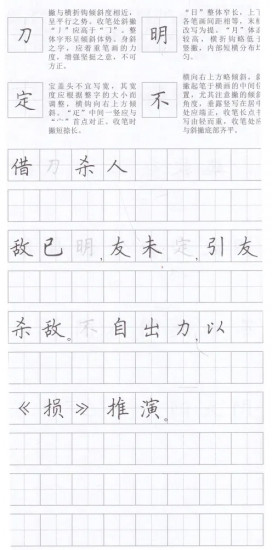 刀
撇与横折钩倾斜度相近，
呈平行之势，收笔处斜撇
“丿”应高于“亅”。整
体字形呈倾斜体势。身斜
之字，应着重笔画的力
度，增强坚挺之意，不可
方正。
明
“日”整体窄长，上
各笔画间距相等，末
改写为提。“月”体
较高，横折钩略低
竖撇，内部短横分布
匀。
定
宝盖头不宜写宽，其宽
度应根据整字的大小而
调整，横钩向右上方倾
斜。“疋”中间一竖应与
“宀”首点对正，收笔时
撇短捺长。
不
横向右上方略倾斜，
撇起笔于横画的中间位
置，尤其注意撇的倾
角度，垂露竖写在居
处应端正，收笔长点
写由轻而重，收笔处
与斜撇底部齐平。
借刀杀人
敌已明，友未定，引友
杀敌。不自出力，以
《损》推演。